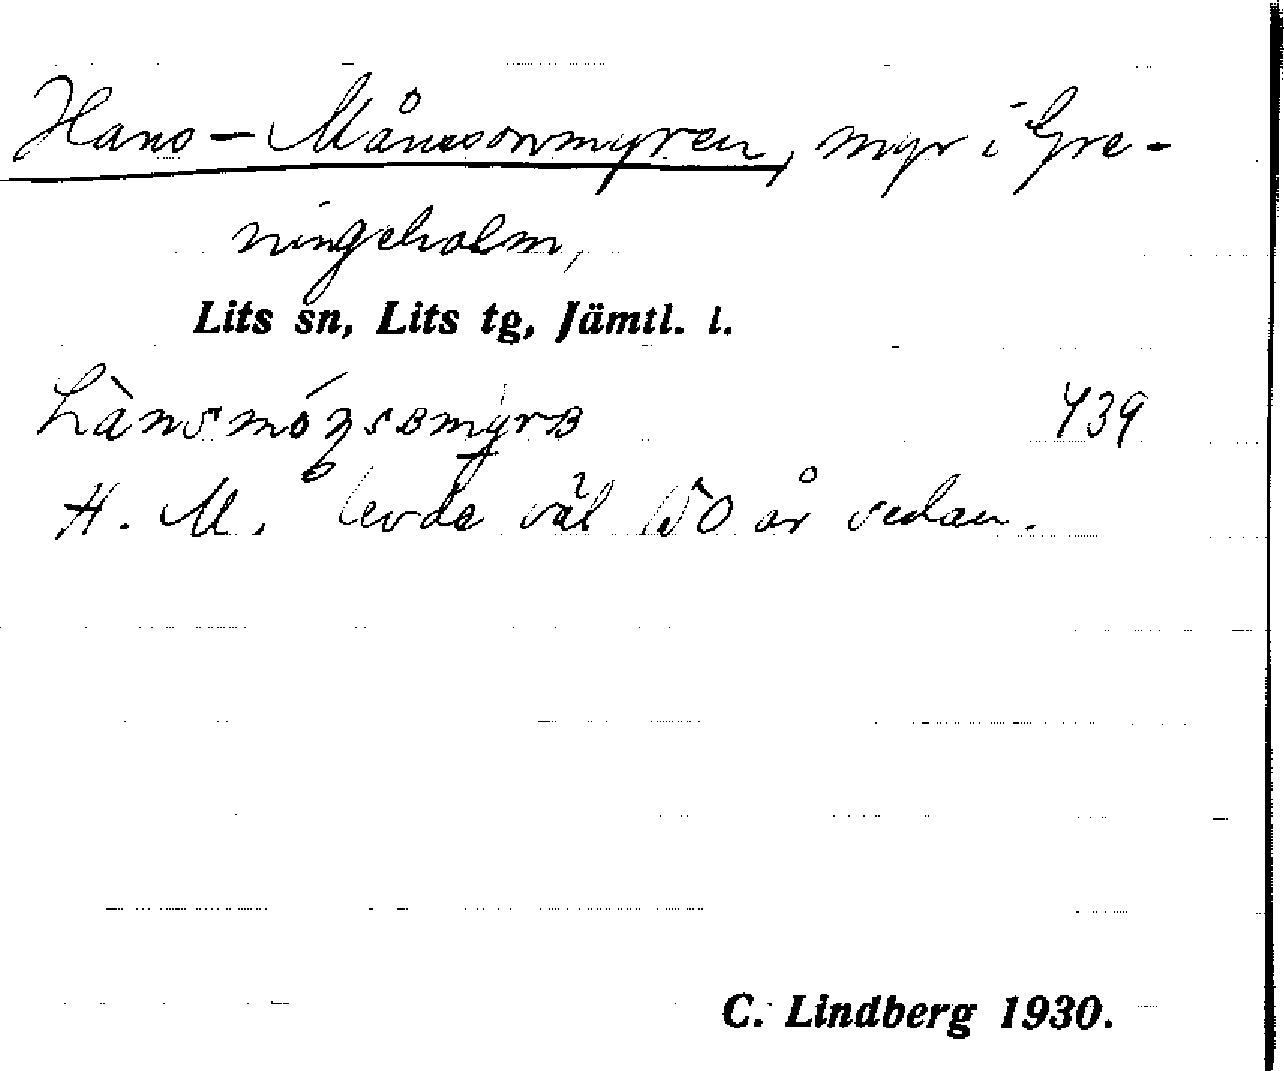 Hans-Månssonmyren, myr i Gre-
ningeholm,
Lits sn, Lits tg, Jämtl. l.
439
H. M. levde väl 150 år sedan.
C. Lindberg 1930.